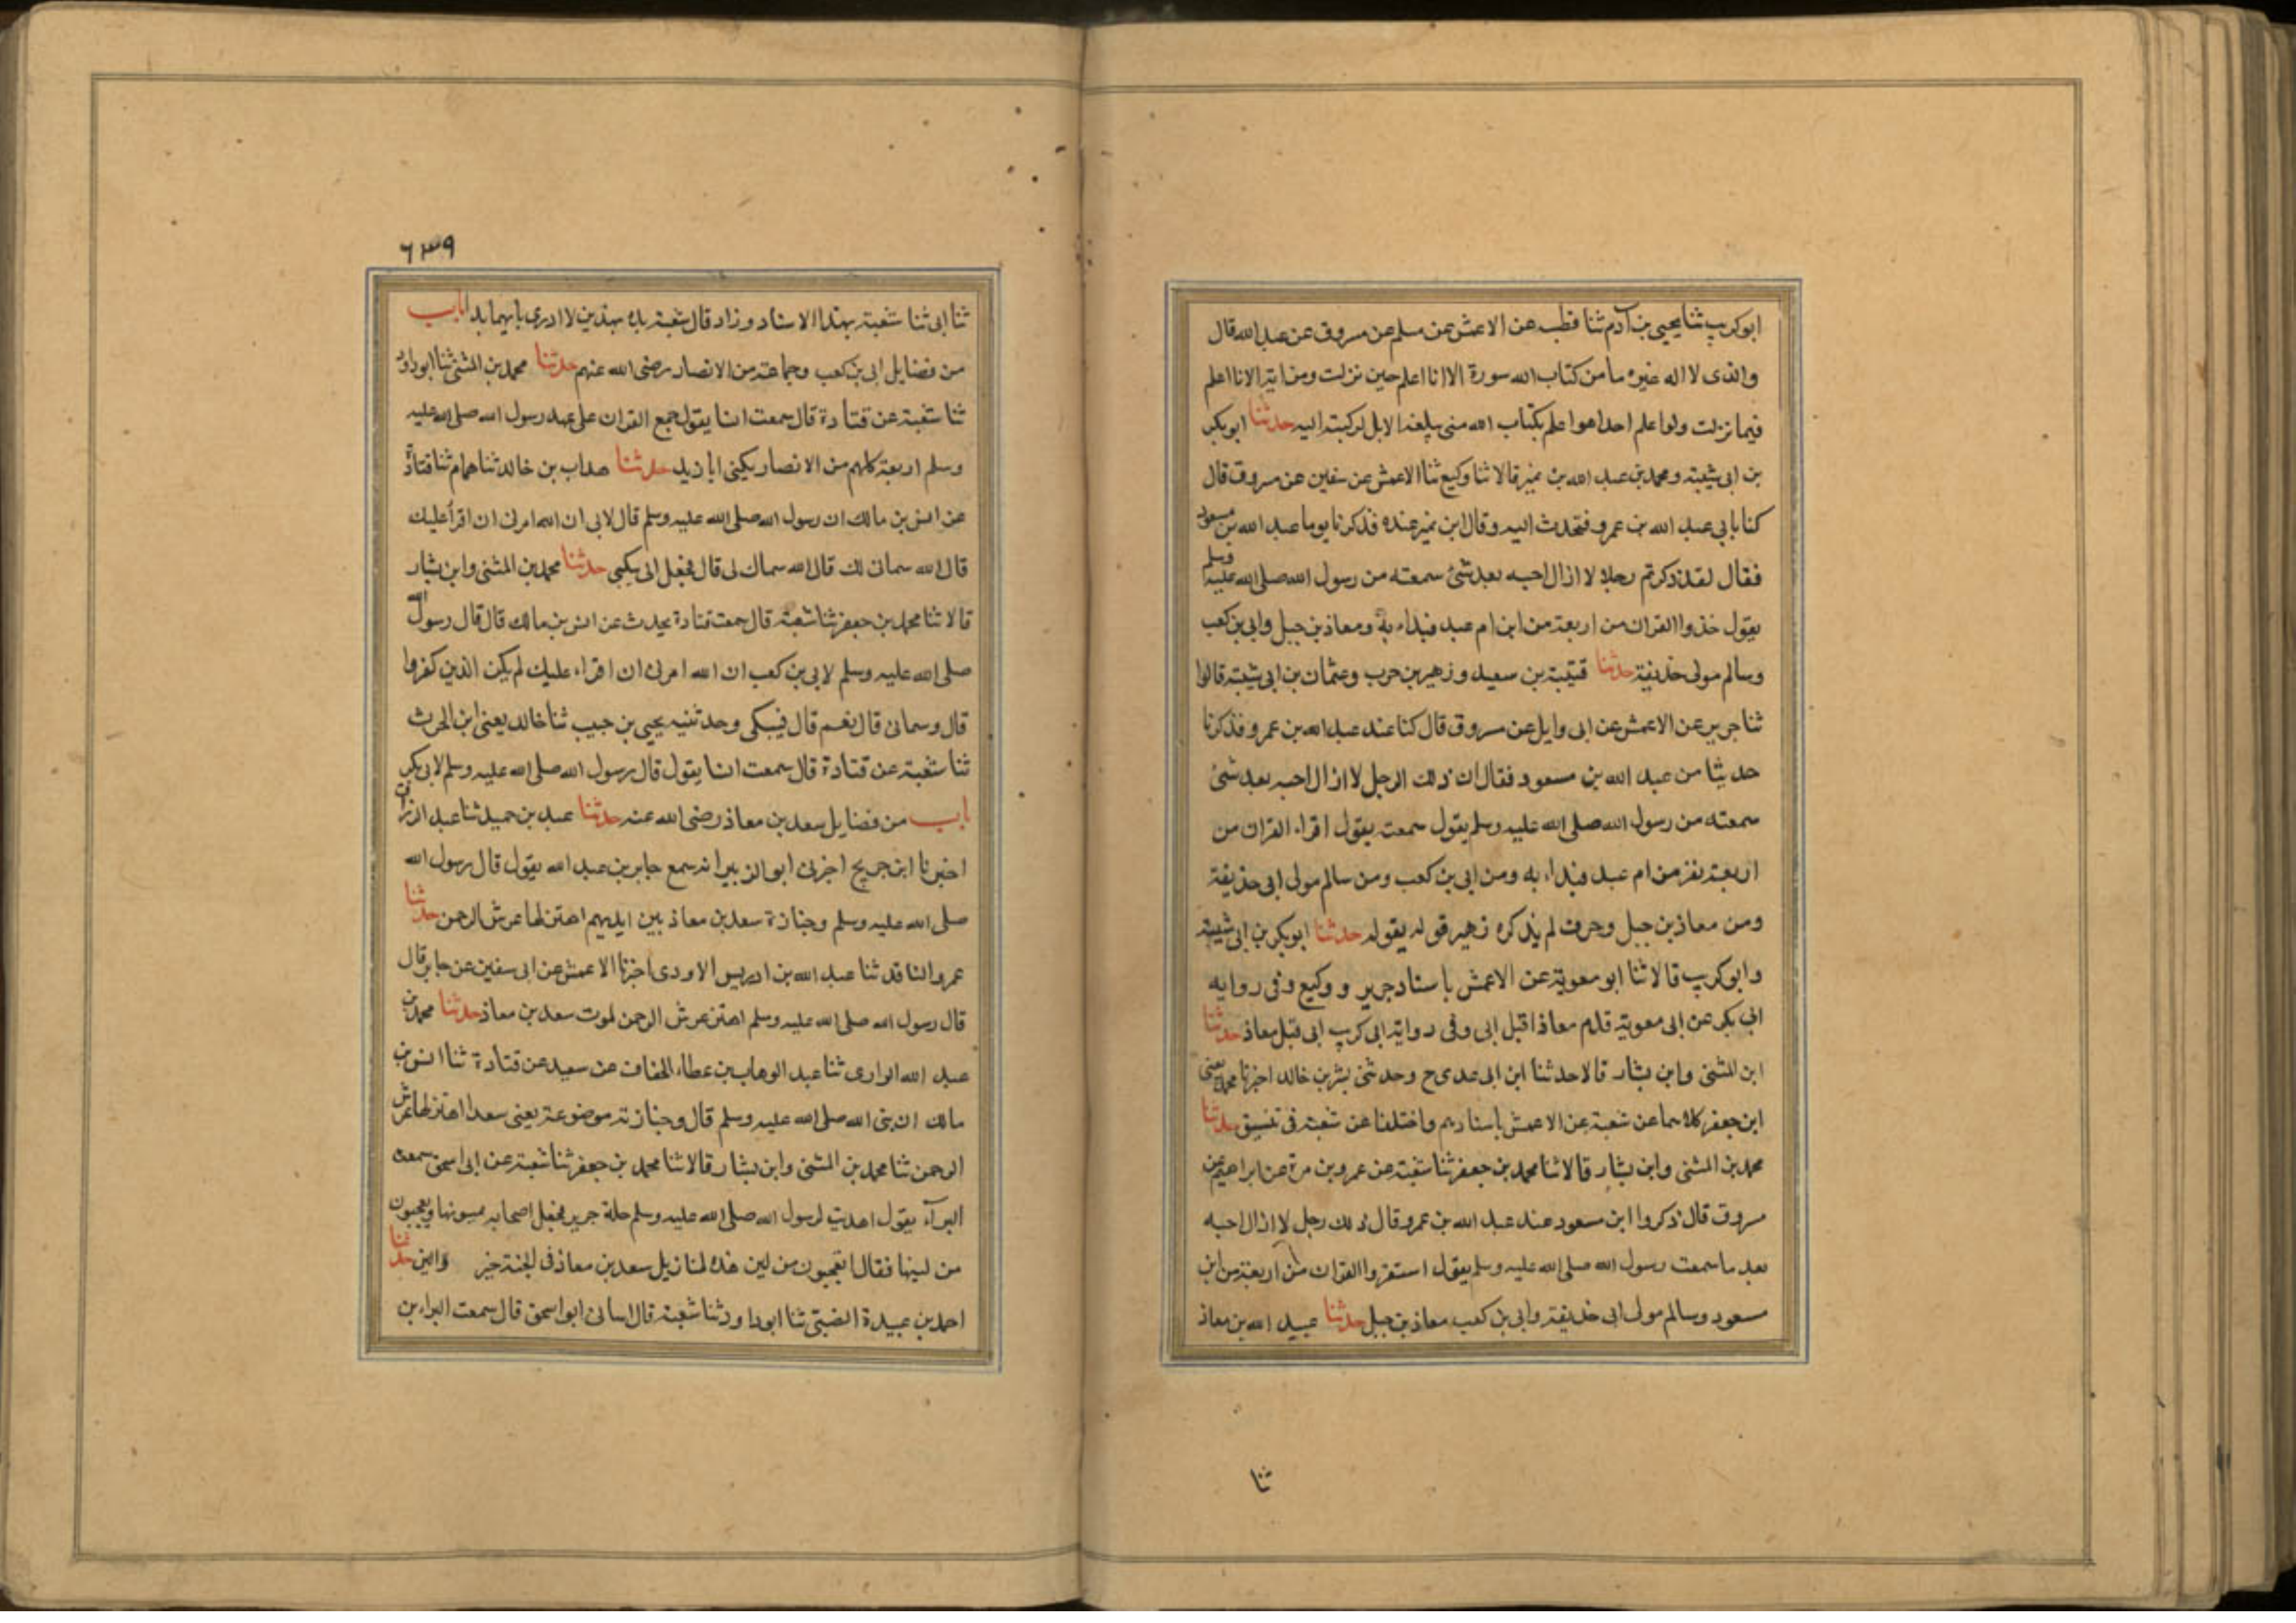 ابوكريب ثنا يحيى بن آدم ثنا قطبه عن الاعمش عن مسلم عن مسروق عن عبد الله قال
والذى لا اله غيره ما من كتاب الله سورة الا انا اعلم حين نزلت ومن اية الا انا اعلم
فيما نزلت ولو اعلم احدا هوا علم بكتاب الله منى يبلغه الابل لركبت اليه حدثنا ابو بكر
بن ابى شيبة ومحمد بن عبد الله بن نمير قالا ثنا وكيع ثنا الاعمش عن سفين عن مسروق قال
كنا باتى عبد الله بن عمرو فنتحدث اليه وقال ابن نمير عنده فذكرنا يوما عبد الله بن مسعود
فقال لقد ذكرتم رجلا لا ازال احبه بعد شئ سمعته من رسول الله صلى الله عليه وسلم
يقول خذوا القران من اربعة من ابن ام عبد فبداء به ومعاذ بن جبل وابى بن كعب
وسالم مولى حذيفة حدثنا قتيبة بن سعيد وزهير بن حرب وعثمان بن ابى شيبة قالوا
ثنا جرير عن الاعمش عن ابى وايل عن مسروق قال كنا عند عبد الله بن عمرو فذكرنا
حديثا من عبد الله بن مسعود فقال ان ذلك الرجل لا ازال احبه بعد شئ
سمعته من رسول الله صلى الله عليه وسلم يقول سمعت يقول اقراء القران من
اربعة نفر من ام عبد فبداء به ومن ابى بن كعب ومن سالم مولى ابى حذيفة
ومن معاذ بن جبل وحرف لم يذكره زهير قوله يقوله حدثنا ابو بكر بن ابى شيبة
وابوكريب قالا ثنا ابو معوية عن الاعمش باسناد جرير ووكيع وفى روايه
ابى بكر عن ابى معوية قدم معاذا قبل ابى وفى رواية ابى كريب ابى قبل معاذ حدثنا
ابن المثنى وابن بشار قالا حدثنا ابن ابى عدى ح وحدثنى بشر بن خالد اخبرنا محمد يعنى
ابن جعفر كلاهما عن شعبة عن الاعمش باسنادهم واختلفا عن شعبة فى تنسيق حدثنا
محمد بن المثنى وابن بشار قالا ثنا محمد بن جعفر ثنا شعبة عن عمرو بن مرة عن ابراهيم عن
مسروق قال ذكروا ابن مسعود عند عبد الله بن عمرو قال ذلك رجل لا ازال احبه
بعد ما سمعت رسول الله صلى الله عليه وسلم يقول استقروا القران من اربعة من ابن
مسعود وسالم مولى ابى حذيفة وابى بن كعب معاذ بن جبل حدثنا عبيد الله بن معاذ
ثنا
٦٣٩
ثنا ابى ثنا شعبة بهذا الاسناد وزاد قال شعبة بدء بهذين لا ادرى بايهما بدا باب
من فضايل ابى بن كعب وجماعة من الانصار رضى الله عنهم حدثنا محمد بن المثنى ثنا ابو داود
ثنا شعبة عن قتادة قال سمعت انسا يقول جمع القران على عهد رسول الله صلى الله عليه
وسلم اربعة كلهم من الانصار يكنى ابا زيد حدثنا هداب بن خالد ثنا همام ثنا قتادة
عن انس بن مالك ان رسول الله صلى الله عليه وسلم قال لابى ان الله امرنى ان اقرأ عليك
قال الله سمانى لك قال الله سماك لى قال فجعل ابى يبكى حدثنا محمد بن المثنى وابن بشار
قالا ثنا محمد بن جعفر ثنا شعبة قال سمعت قتادة يحدث عن انس بن مالك قال قال رسول الله
صلى الله عليه وسلم لابى بن كعب ان الله امرنى ان اقراء عليك لم يكن الذين كفروا
قال وسمانى قال نعم قال فيبكى وحدثنيه يحيى بن حبيب ثنا خالد يعنى ابن الحرث
ثنا شعبة عن قتادة قال سمعت انسا يقول قال رسول الله صلى الله عليه وسلم لابى بكر
باب من فضايل سعد بن معاذ رضى الله عنه حدثنا عبد بن حميد ثنا عبد الرزاق
اخبرنا ابن جريج اخبرنى ابو الزبير انه سمع جابر بن عبد الله يقول قال رسول الله
صلى الله عليه وسلم وجنازة سعد بن معاذ بين ايديهم اهتز لها عرش الرحمن حدثنا
عمرو الناقد ثنا عبد الله بن ادريس الاودى اخبرنا الاعمش عن ابى سفين عن جابر قال
قال رسول الله صلى الله عليه وسلم اهتز عرش الرحمن لموت سعد بن معاذ حدثنا محمد بن
عبد الله الرازى ثنا عبد الوهاب بن عطاء الخفاف عن سعيد عن قتادة ثنا انس بن
مالك ان نبى الله صلى الله عليه وسلم قال وجنازته موضوعة يعنى سعدا اهتز لها عرش
الرحمن ثنا محمد بن المثنى وابن بشار قالا ثنا محمد بن جعفر ثنا شعبة عن ابى اسحق سمعت
البرآء يقول اهديت لرسول الله صلى الله عليه وسلم حلة حرير فجعل اصحابه يمسونها ويعجبون
من لينها فقال اتعجبون من لين هذه لمناديل سعد بن معاذ فى الجنة خير والين حدثنا
احمد بن عبيدة الضبى ثنا ابو داود ثنا شعبة قال انبانى ابو اسحق قال سمعت البراء بن